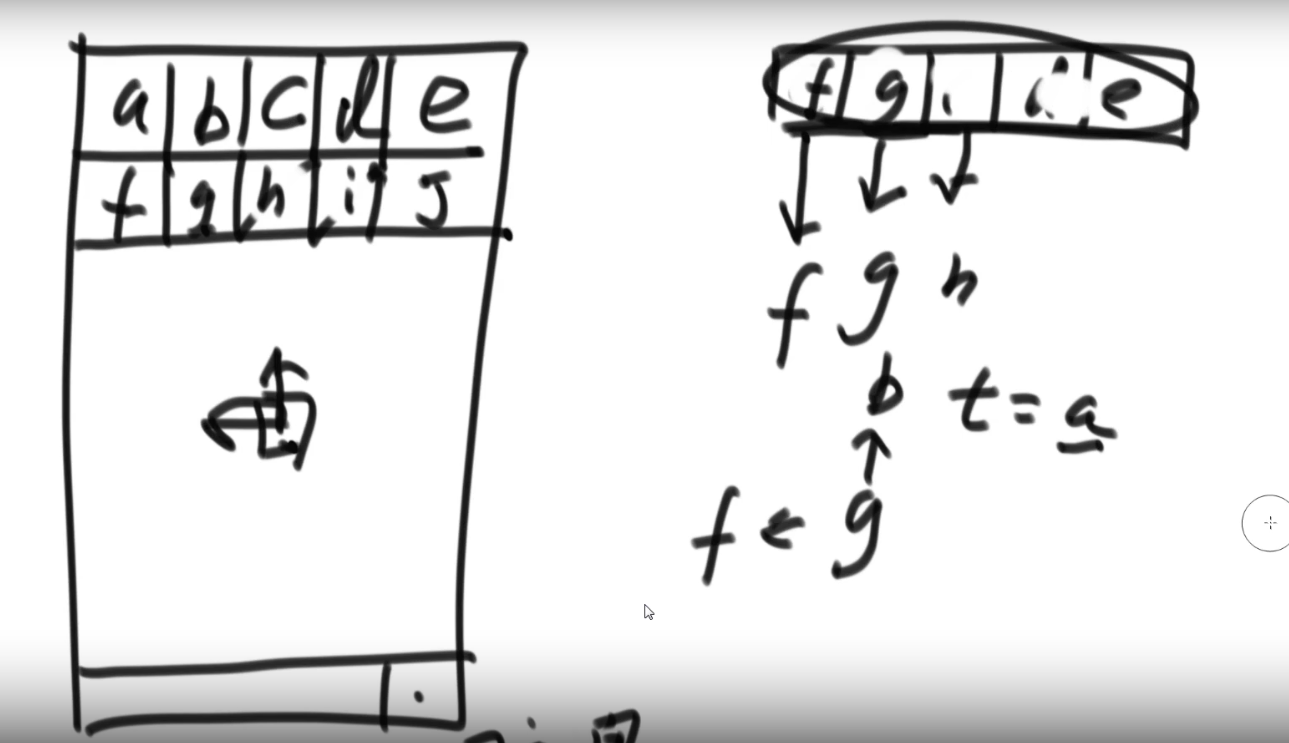 a b c d e
f g h i j
f g e
f g h
b t = a
f ← g